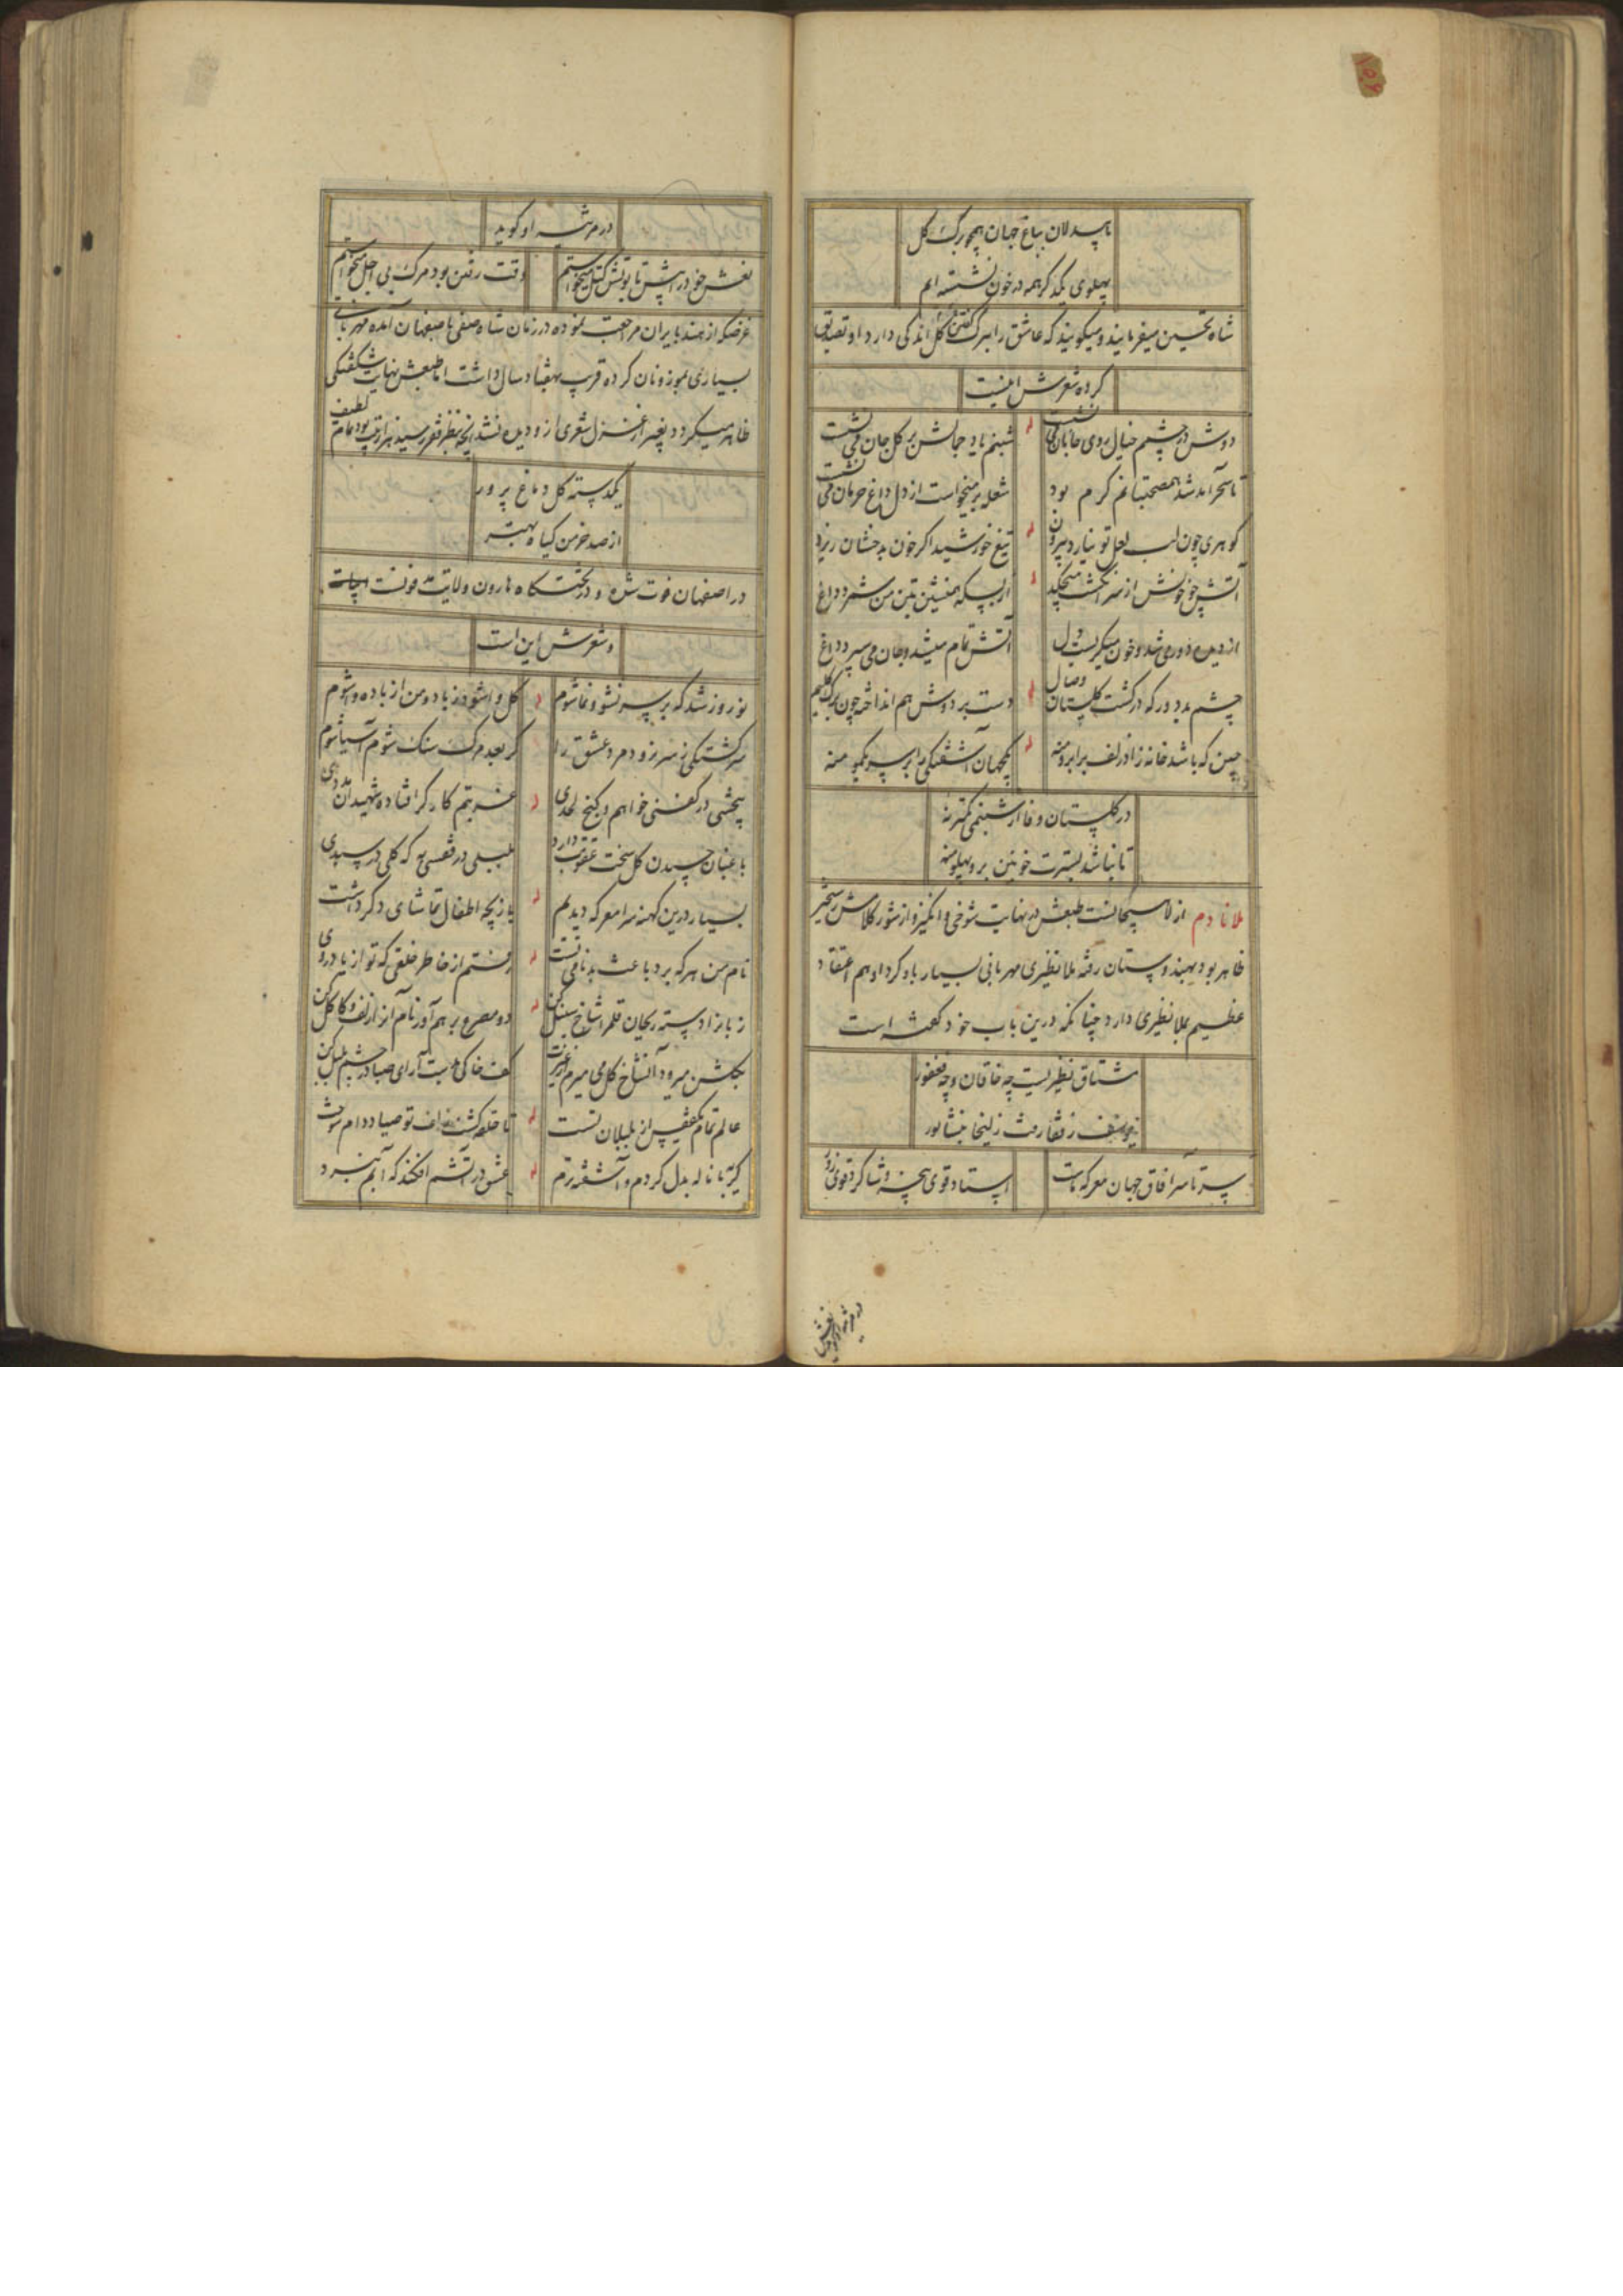 ما بیدلان بباغ جهان همچو برک کل
پهلوی یکدکر همه در خون نشسته ایم
شاه تحسین میفرمایند و میکویند که عاشق را ببرک کل اندکی دارد او تصدیق
کرده شعرش اینست
دوش در چشمم خیال روی جانان می نشست
شبنم یاد جمالش بر کل جان می نشست
تا سحر آمد شد همصحبتانم کرم بود
شعله بر میخواست از دل داغ حرمان می نشست
کوهری چون لب لعل تو نیارد بیرون
تیغ خورشید اکر خون بدخشان ریزد
آتش چو خونش از سر انکشت میچکید
از بسکه همنشین تن من شمرد داغ
از دیده دوری شد و خون میکریست دل
آتش تمام میشد و جان می سپرد داغ
چشم بد دور که در کشت کلستان وصال
دست بر دوش هم انداخته چون برک کلیم
چین که باشد خانه زاد زلف بر ابرو منه
یکجهان آشفتکی را بر سر یکمو منه
در کلستان وفا از شبنمی کمتر نه
تا نباشد بسترت خونین برو پهلو منه
ملا نادم از لاهیجانست طبعش در نهایت شوخی و انکیز و از شور کلامش رستخیز
ظاهر بود بهندوستان رفته ملا نظیری مهربانی بسیار باو کرد او هم اعتقاد
عظیم بملا نظیری دارد چنانکه درین باب خود کفته است
مشتاق نظیریست چه خاقان و چه فغفور
یوسف ز قفا رفت زلیخا نشابور
سر تا سر آفاق جهان معرکه ماست
استاد قوی پنجه و شاکرد قوی زور
در مرثیه او کوید
نعش خود را پیش تابوتش کتل میخواستم
وقت رفتن بود مرک بی اجل میخواستم
غرضکه از هند بایران مراجعت نموده در زمان شاه صفی باصفهان آمده مهربانی
بسیاری بموزونان کرده قریب بهفتاد سال داشت اما طبعش نهایت شکفتکی
ظاهر میکردد بغیر از غزل شعری ازو دیده نشد آنچه بنظر فقیر رسید هزار بیت بود تمام لطیف
یکدسته کل دماغ پرور
از صد خرمن کیاه بهتر
در اصفهان فوت شده و در تختکاه هارون ولایت مدفونست
و شعرش این است
نوروز شد که بر سر نشو و نما شوم
کل وا شود ز باد و من از باده وا شوم
سرکشتکی ز سر نرود مرد عشق را
کر بعد مرک سنک شوم آسیا شوم
پنجشی در کفنی خواهم و کنج لحدی
غریبم کار کر افتاده شهیدان مددی
باغبان چیدن کل سخت عقوبت دارد
بلبلی در قفسی به که کلی در سبدی
بسیار درین کهنه سرا معرکه دیدم
بازیچه اطفال تماشای دکر داشت
نام من هر که برد باعث بدنامی تست
رفتم از خاطر خلقی که تو از یاد روی
زبانرا دسته ریحان قلم را شاخ سنبل کن
دو مصرع بر هم آور نام آنرا زلف و کاکل کن
بکلشن میرود آنشاخ کل می میرم از غیرت
کف خاکی بدست آر ای صبا در چشم بلبل کن
عالم تمام یکقفس از بلبلان تست
تا حلقه کشت زلف تو صیاد دام سوخت
کریه با ناله بدل کردم و آشفته ترم
عشق در آتشم افکند که آبم نبرد
در مرثیه او کوید نعش